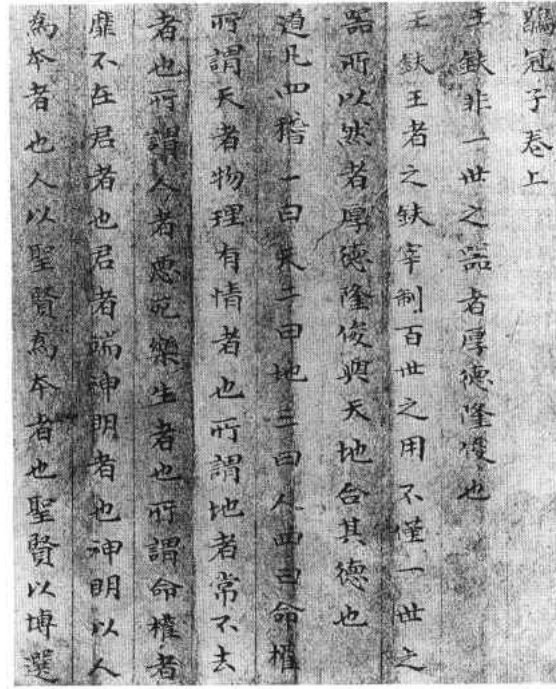 鶡冠子卷上
王鈇非一世之噐者厚德隆俊也
王鈇王者之鈇宰制百世之用不僅一世之
噐所以然者厚德隆俊與天地合其德也
道凡四稽一曰天二曰地三曰人四曰命權
所謂天者物理有情者也所謂地者常不去
者也所謂人者惡死樂生者也所謂命權者
靡不在君者也君者端神明者也神明以人
為本者也人以聖賢為本者也聖賢以博選